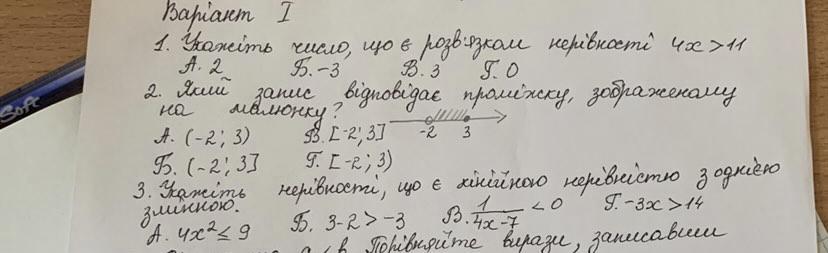 Варіант I
1. Укажіть число, що є розв'язком нерівності 4x > 11
А. 2 Б. -3 В. 3 Г. 0
2. Який запис відповідає проміжку, зображеному
на малюнку? -2 3
А. (-2; 3) В. [-2; 3]
Б. (-2; 3] Г. [-2; 3)
3. Укажіть нерівності, що є лінійною нерівністю з однією
змінною.
А. 4x² ≤ 9 Б. 3-2 > -3 В. 1/(4x-7) < 0 Г. -3x > 14
Порівняйте вирази, записавши
Soft